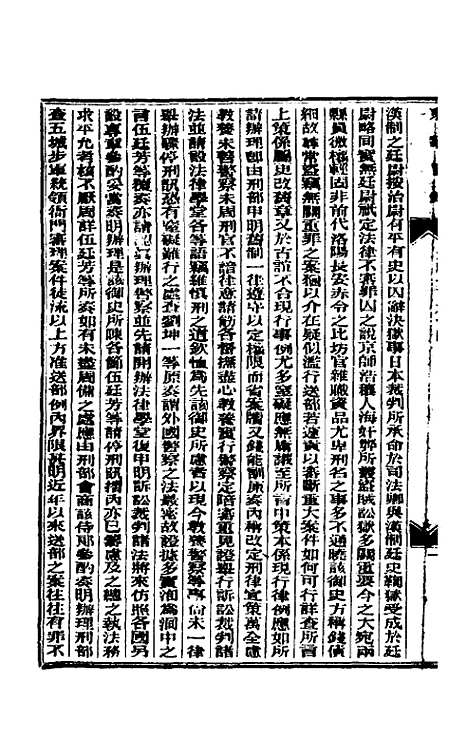 漢制之廷尉按治尉有平有史以因辭決獄事日本裁判所承命於司法卿與漢制廷史鞫獄受成於廷
尉略同實無廷尉祇定法律不裏罪囚之說京師浩穰人海奸慝所叢盜賊訟獄多關重要今之大宛兩
縣員微權輕固非前代洛陽長安赤令之比坊官雜職資品尤卑刑名之事多不通曉該御史方稱錢債
細故尋常盜竊無關重罪之案猶以介在疑似濫行送部若遽責以審斷重大案件如何可行詳查所言
上策係屬史改舊章又於古誼不合現行事例尤多窒礙應無庸議至所言中策本係現行律例應如所
請辦理卽由刑部申明舊制一律遵守以定權限而省案牘又錢能訓原奏內稱改定刑律宜策萬全慮
教養未警察未周刑官不諳往意請飭各督撫盡心教養實行警察定陪審重見證舉行訴訟裁判諸
法並請設法律學堂各等語竊維慎刑之道欽恤爲先該御史所慮者以現今教養警察等事尚未一律
舉辦驟停刑訊恐有窒礙難行之處查劉坤一等原奏謂外國警察之法最密故證據多實洵爲洞中之
言伍廷芳等覆奏亦請 辦理警察並先請開辦法律學堂復申明訴訟裁判諸法將來仿照各國另
設專章參酌妥當奏明辦理是該御史所陳各節伍廷芳等請停刑訊摺內亦已籌慮及之總之執法務
求平允考核不厭周詳伍廷芳等所奏如有未盡周備之處應由刑部會商該侍郎參酌奏明辦理刑部
查五城步軍統領衙門審理案件徒流以上方准送部例內界限甚明近年以來送部之案往往有罪不